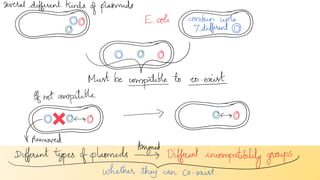 Several different kinds of plasmids
E. coli
contain upto
7 different
Must be compatible to co-exist
If not compatible
Removed
Different types of plasmids
Assigned
Different incompatibility groups
whether they can co-exist